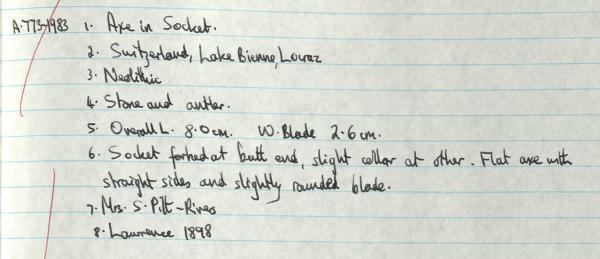 A.773.1983 1. Axe in Socket.
2. Switzerland, Lake Bienne, Locraz
3. Neolithic
4. Stone and antler.
5. Overall L. 8.0cm. W. Blade 2.6cm.
6. Socket forked at butt end, slight collar at other. Flat axe with
straight sides and slightly rounded blade.
7. Mrs. S. Pitt-Rivers
8. Lawrence 1898